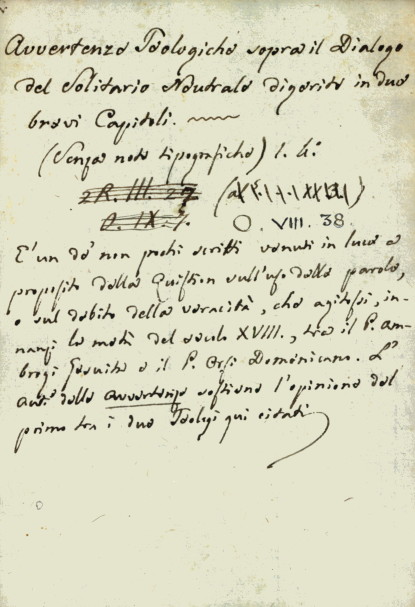 Avvertenze Teologiche sopra il Dialogo
del Solitario Neutrale digerite in due
brevi Capitoli.
(Senza note tipografiche) 1. 4.°
2R. III. 27
O. IX. 1.
O. VIII. 38.
È un de' non pochi scritti venuti in luce a
proposito della Quistion sull'uso delle parole,
e sul debito della veracità, che agitossi, in-
nanzi la metà del secolo XVIII., tra il P. Am-
brogi Gesuita e il P. Orsi Domenicano. L'
aut.e delle avvertenze sostiene l'opinione del
primo tra i due Teologi qui citati